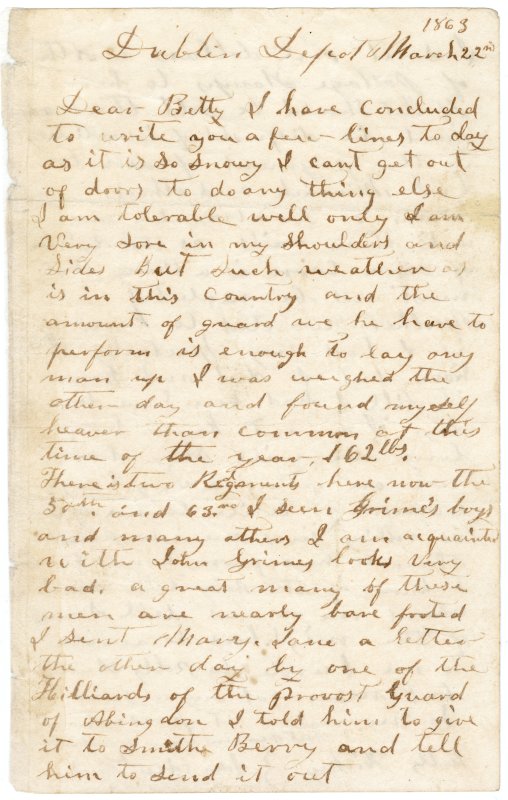 1863
Dublin Depot March 22nd
Dear Betty I have concluded
to write you a few lines to day
as it is so snowy I cant get out
of doors to do any thing else
I am tolerable well only I am
very sore in my shoulders and
sides But such weather as
is in this country and the
amount of guard we he have to
perform is enough to lay any
man up I was weighed the
other day and found myself
heaver than common at this
time of the year, 162 lbs.
There is two Regiments here now the
50th and 63rd I seen Grime's boys
and many others I am acquainted
with John Grimes looks very
bad. a great many of these
men are nearly bare footed
I sent Mary. Jane a letter
the other day by one of the
Hilliards of the Provost Guard
of Abingdon I told him to give
it to Smithe Berry and tell
him to send it out